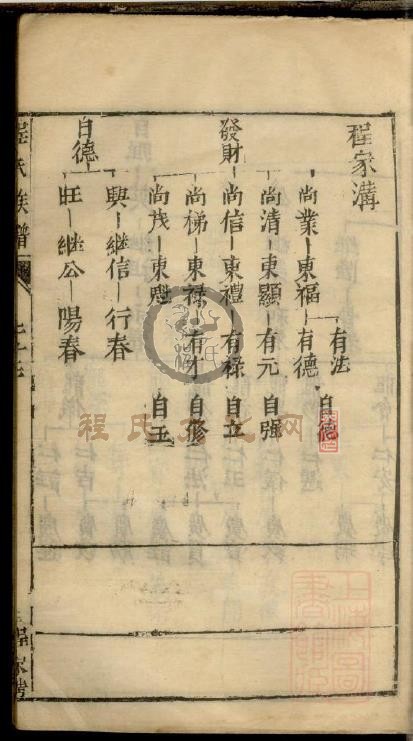 程家溝
有法
尚業 東福 有德 自德
尚清 東顯 有元 自强
發財 尚信 東禮 有祿 自立
尚梯 東祿 有才 自修
尚茂 東魁 自玉
興 繼信 行春
自德 旺 繼公 陽春
程氏族譜
程家溝